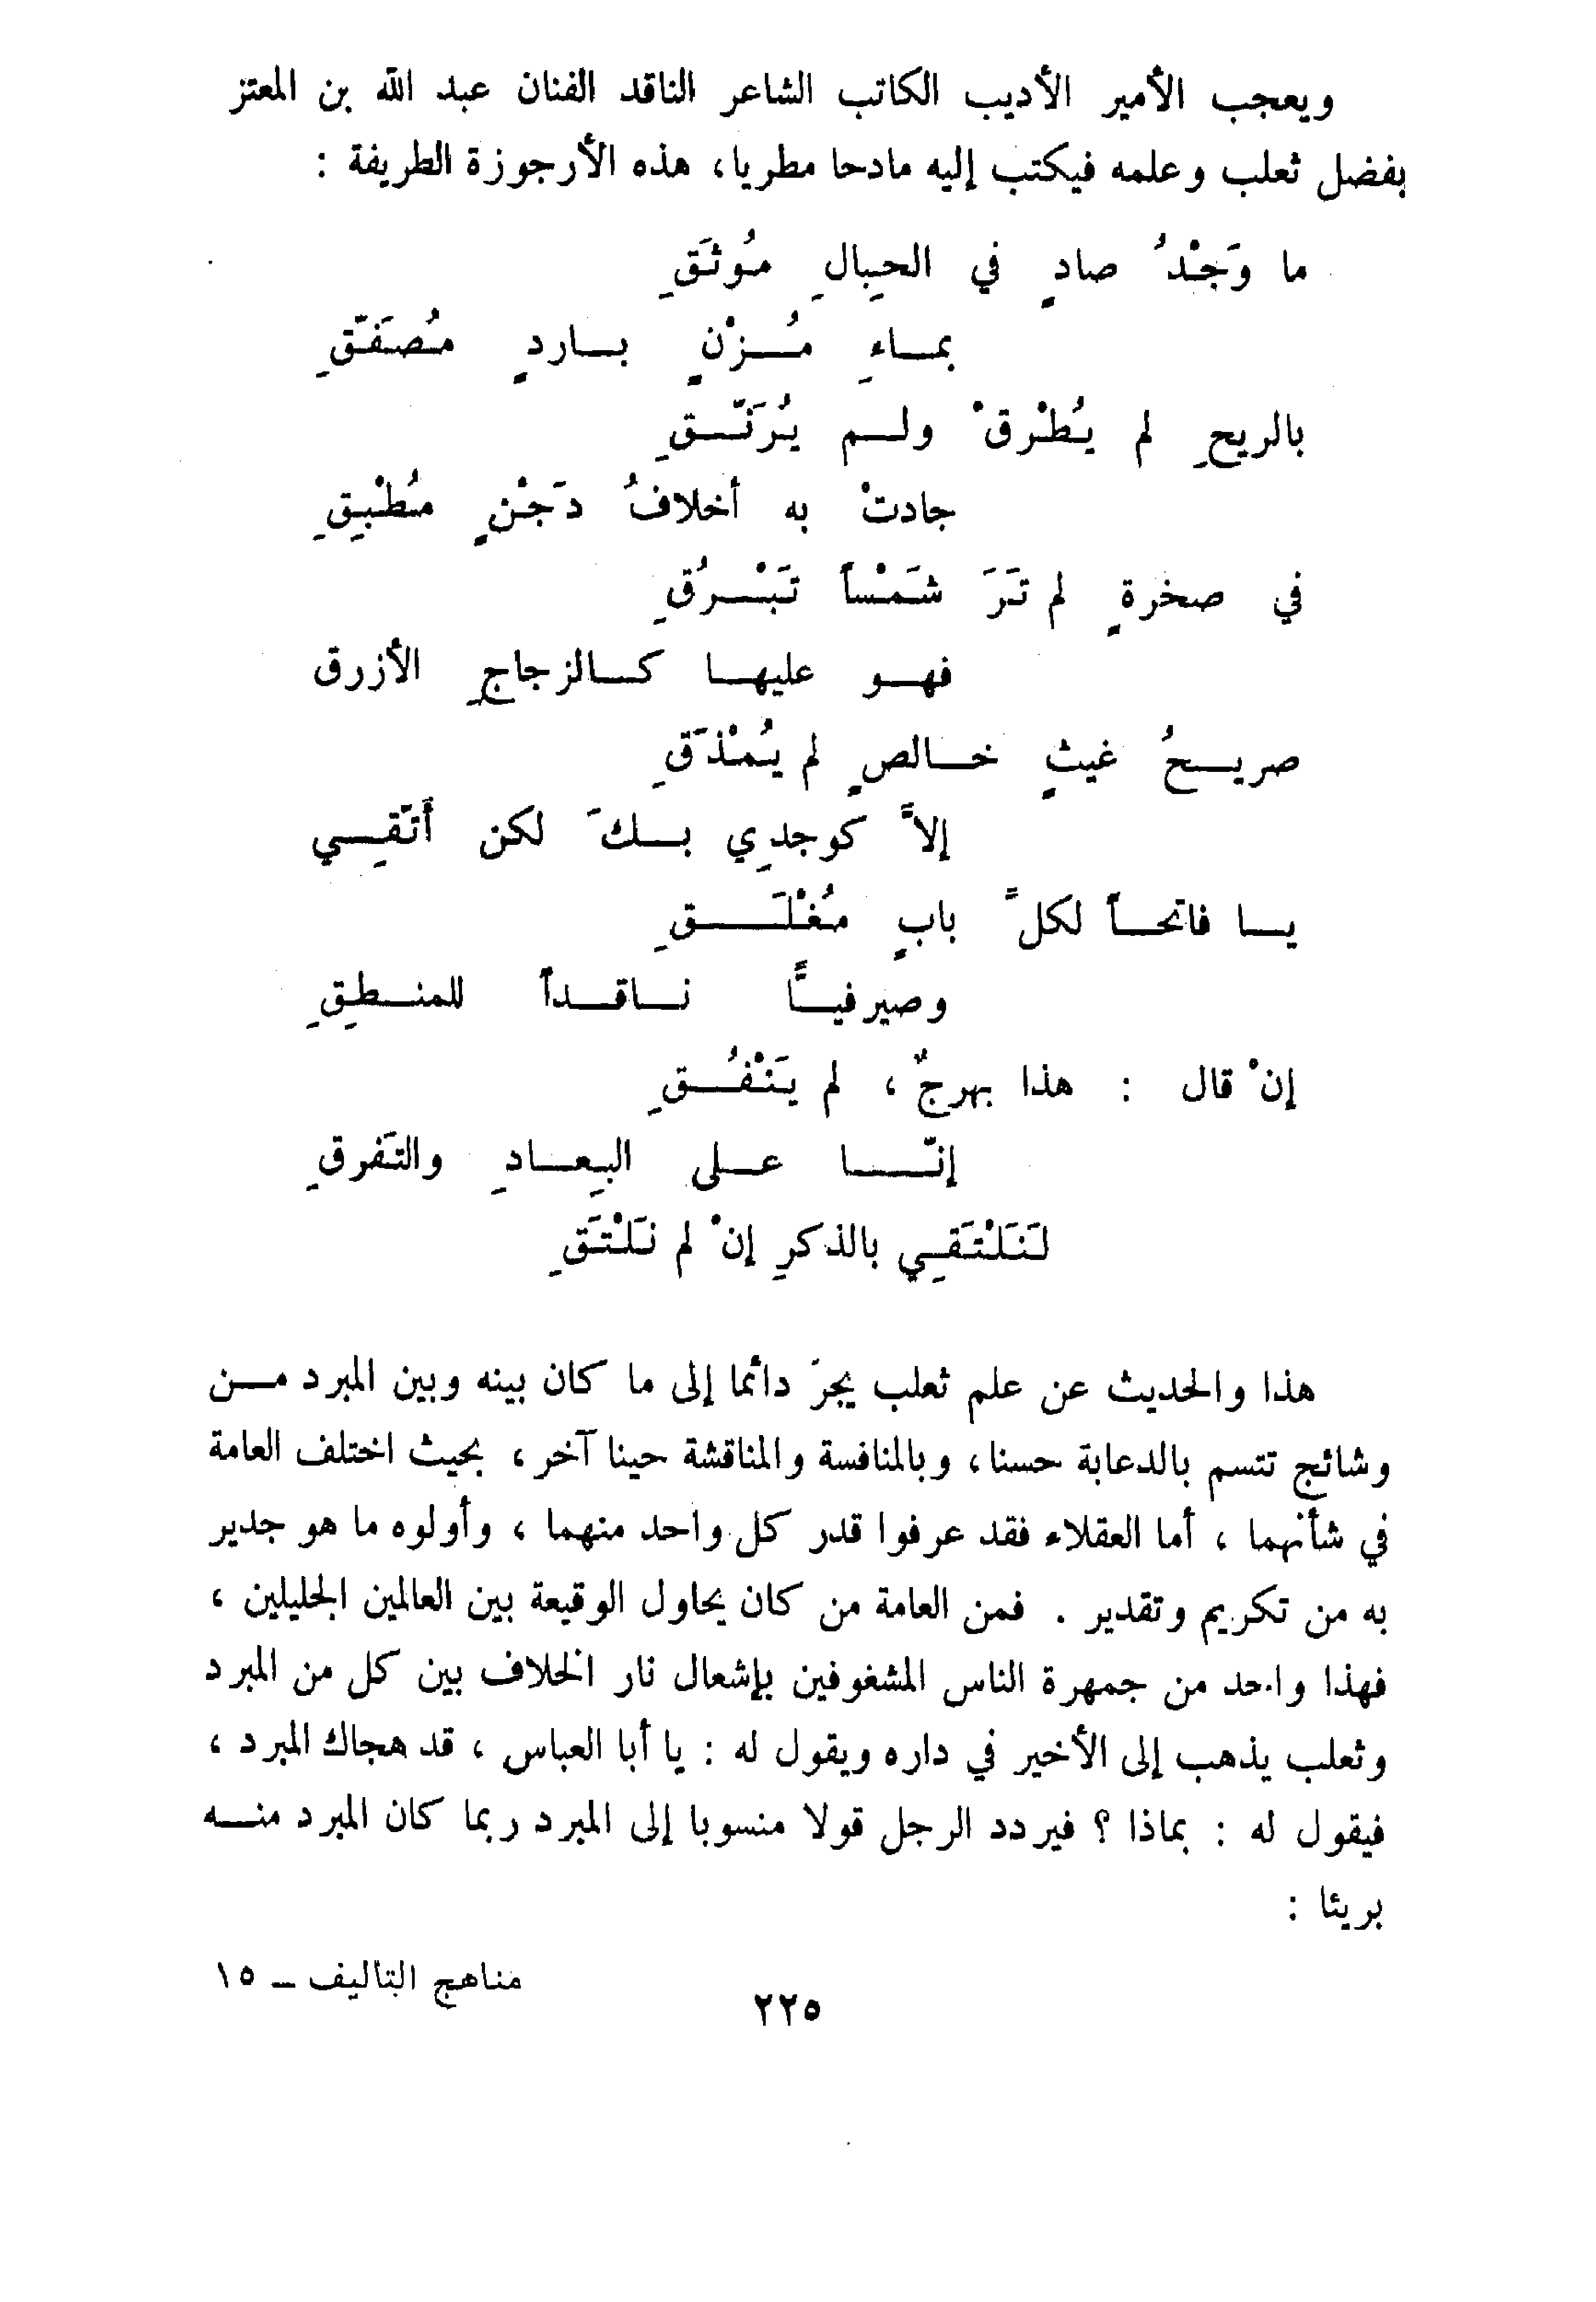 ويعجب الأمير الأديب الكاتب الشاعر الناقد الفنان عبد الله بن المعتز
بفضل ثعلب وعلمه فيكتب إليه مادحا مطريا، هذه الأرجوزة الطريفة :
ما وَجْدُ صادٍ في الحِبالِ مُوثَقِ
بمـاءِ مُـزْنٍ بـاردٍ مُصَفّقِ
بالريحِ لم يُطْرقْ ولـم يُرَنّـقِ
جادتْ به أخلافُ دَجْنٍ مُطْبِقِ
في صخرةٍ لم تَرَ شَمْساً تَبْـرُقِ
فهـو عليهـا كـالزجاجِ الأزرق
صريـحُ غيثٍ خـالصٍ لم يُمْذَقِ
إلاَّ كوجدِي بـكَ لكن أَتّقِـي
يـا فاتحـاً لكلَّ بابٍ مُغْلَـقِ
وصيرفيـاً نـاقـداً للمنـطِقِ
إنْ قال : هذا بهرجٌ ، لم يَنْفُـقِ
إنّـا عـلى البِعـادِ والتَفرقِ
لَنَلْتَقِي بالذكرِ إنْ لم نَلْتَقِ
هذا والحديث عن علم ثعلب يجرّ دائما إلى ما كان بينه وبين المبرد مـن
وشائج تتسم بالدعابة حسنا، وبالمنافسة والمناقشة حينا آخر ، بحيث اختلف العامة
في شأنهما ، أما العقلاء فقد عرفوا قدر كل واحد منهما ، وأولوه ما هو جدير
به من تكريم وتقدير . فمن العامة من كان يحاول الوقيعة بين العالمين الجليلين ،
فهذا واحد من جمهرة الناس المشغوفين بإشعال نار الخلاف بين كل من المبرد
وثعلب يذهب إلى الأخير في داره ويقول له : يا أبا العباس ، قد هجاك المبرد ،
فيقول له : بماذا ؟ فيردد الرجل قولا منسوبا إلى المبرد ربما كان المبرد منـه
بريئا :
مناهج التاليف ــ ١٥
٢٢٥